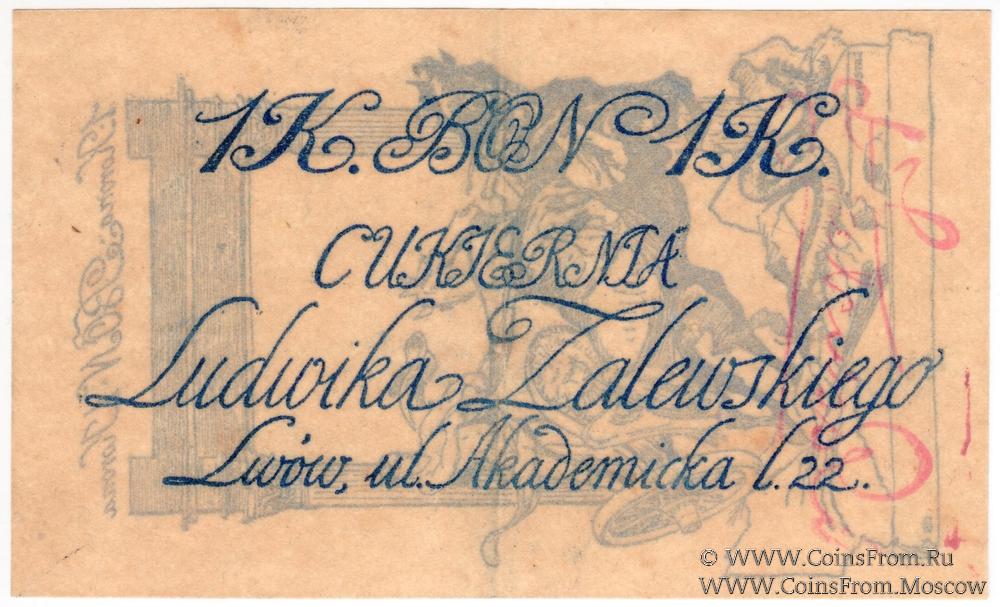 1K. BON 1K.
CUKIERNIA
Ludwika Zalewskiego
Lwów, ul. Akademicka l. 22.
© WWW.CoinsFrom.Ru
WWW.CoinsFrom.Moscow